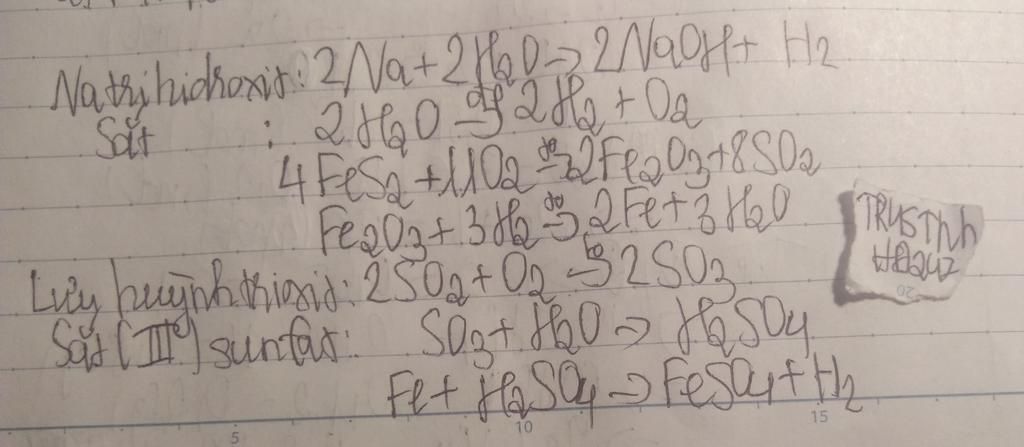 Natrihidroxit: 2Na + 2H2O -> 2NaOH + H2
Sắt : 2H2O -đf> 2H2 + O2
4FeS2 + 11O2 -to> 2Fe2O3 + 8SO2
Fe2O3 + 3H2 -to> 2Fe + 3H2O
Lưu huỳnh trioxit: 2SO2 + O2 -to> 2SO3
Sắt (II) sunfat: SO3 + H2O -> H2SO4
Fe + H2SO4 -> FeSO4 + H2
TRUSTnh
5 10 15
20